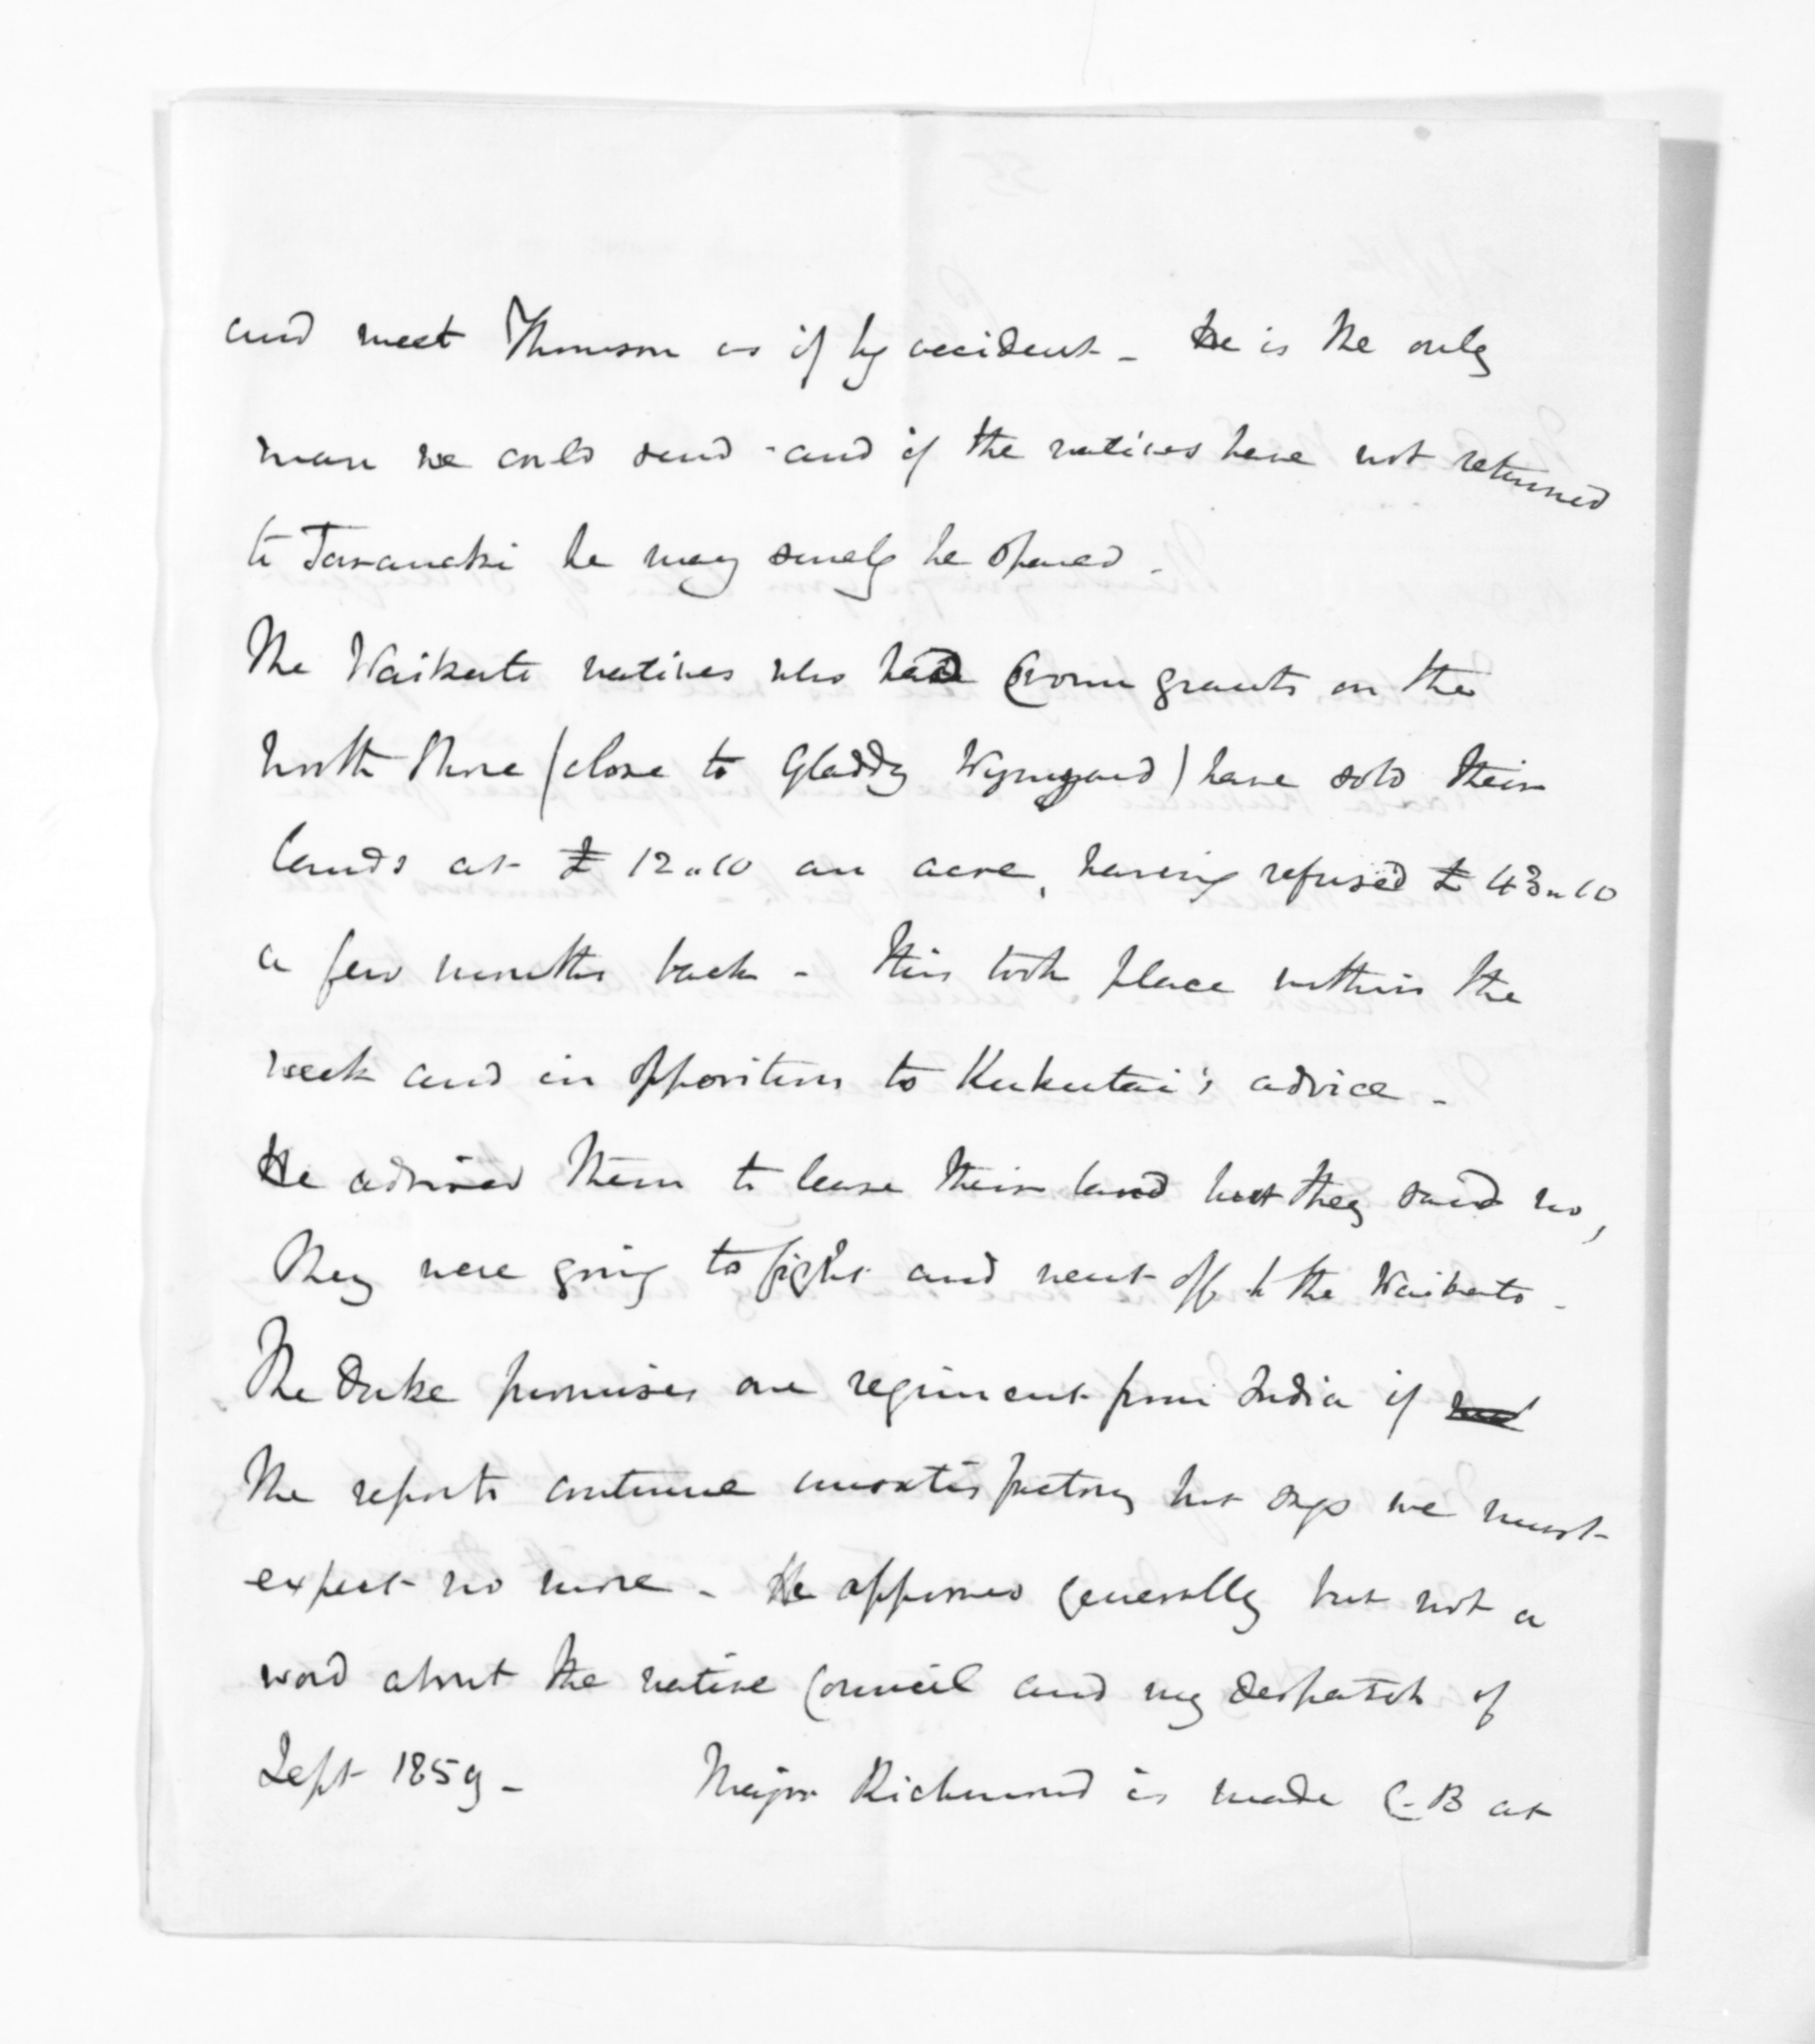 and meet Thomson as if by accident - He is the only
man we could send - and if the natives have not returned
to Taranaki he may surely be spared -
The Waikato natives who had Crown grants on the
North Shore (close to Gladdy Wynyard) have sold their
lands at £ 12"10 an acre, having refused £ 43"10
a few months back - This took place within the
week and in opposition to Kukutai's advice -
He advised them to lease their land but they said no,
They were going to fight and went off to the Waikato -
The Duke promises one regiment from India if
the reports continue unsatisfactory but says we must
expect no more - He approves generally but not a
word about the native Council and my despatch of
Sept 1859 - Major Richmond is made C-B at